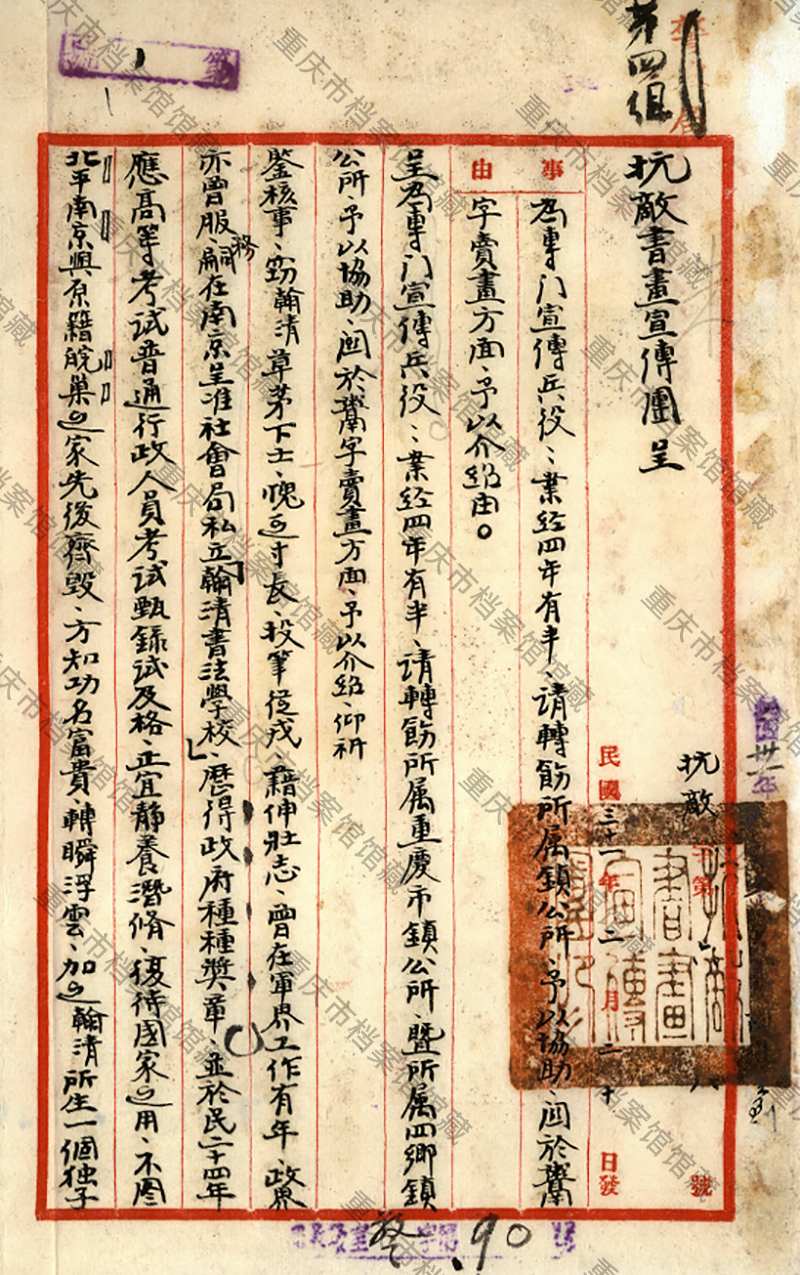 第四組
抗敵書畫宣傳團呈
抗敵 字第 號
民國三十一年二月二十日發
事由
為專門宣傳兵役、業經四年有半、請轉飭所属鎮公所、予以協助、關於鬻
字賣畫方面、予以介紹由。
呈為專門宣傳兵役、業經四年有半、請轉飭所属重慶市鎮公所、暨所属四鄉鎮
公所、予以協助、關於鬻字賣畫方面、予以介紹、仰祈
鉴核事、窃翰清草茅下士、愧乏寸長、投筆從戎、藉伸壯志、曾在軍界工作有年、政界
亦曾服務、嗣在南京呈准社會局私立「翰清書法學校」、歷得政府種種奬章、並於民二十四年
應高等考試普通行政人員考試甄錄試及格、正宜静養潛修、復待國家之用、不图
北平南京與原籍皖巢之家先後齊毀、方知功名富貴、轉瞬浮雲、加之翰清所生一個独子
90
重庆市档案馆馆藏